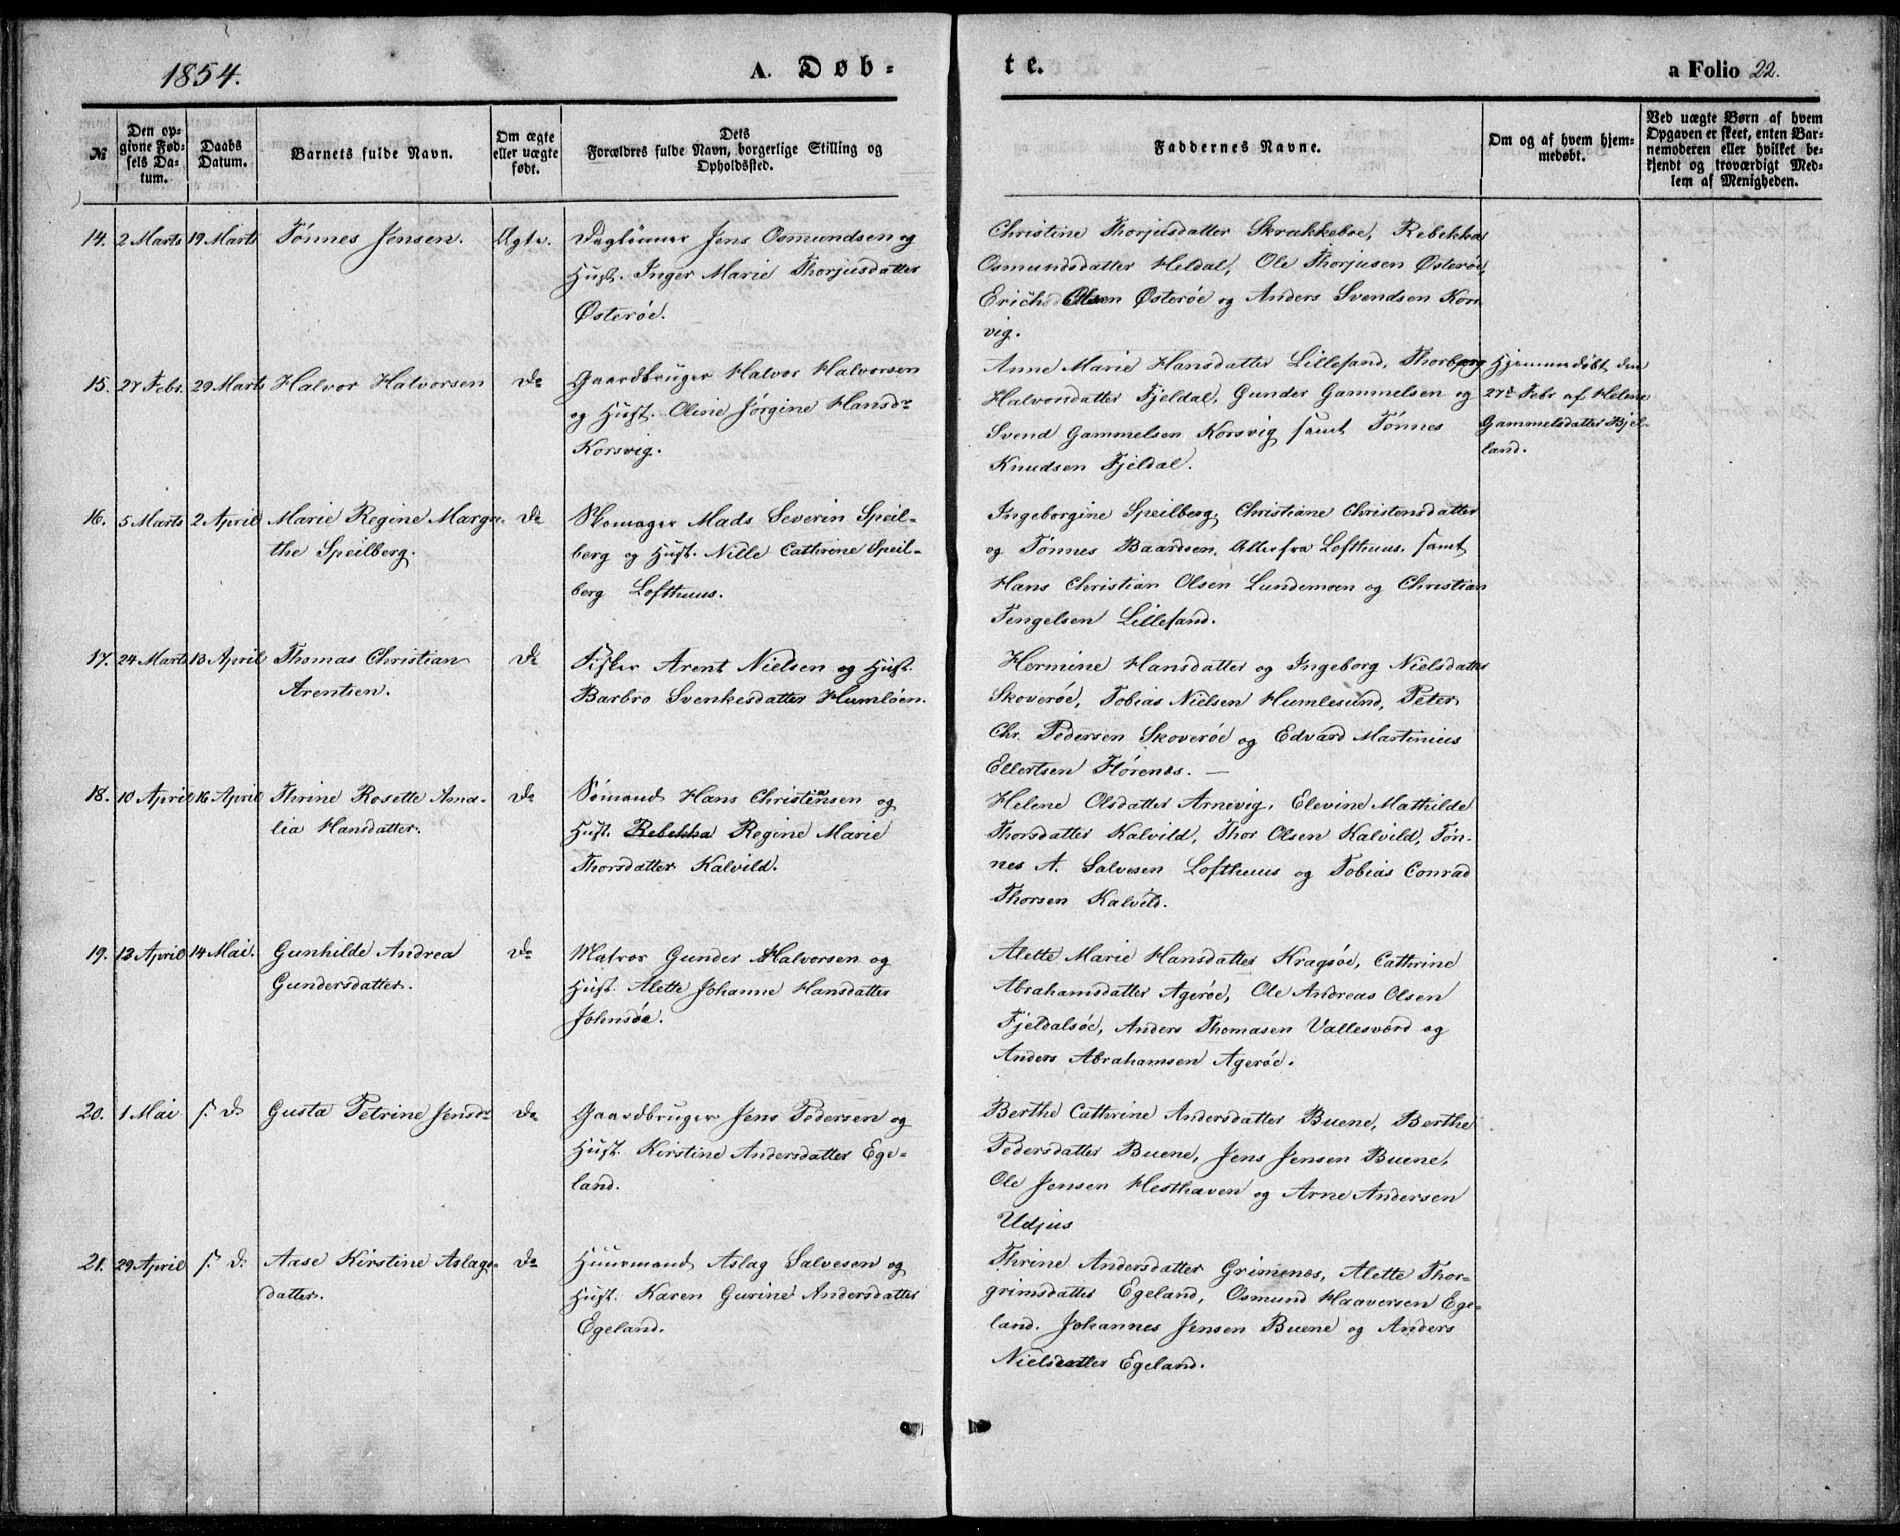 1854.
A. Døb-
te.
a Folio 22.
№
Den op-
givne Fød-
sels Da-
tum.
Daabs
Datum.
Barnets fulde Navn.
Om ægte
eller uægte
født.
Dets
Forældres fulde Navn, borgerlige Stilling og
Opholdssted.
Faddernes Navne.
Om og af hvem hjem-
medøbt.
Ved uægte Børn af hvem
Opgaven er skeet, enten Bar-
nemoderen eller hvilket be-
kjendt og troværdigt Med-
lem af Menigheden.
14. 2 Marts 19 Marts Tønnes Jensen. Ægte.
Daglønner Jens Osmundsen og
Hust. Inger Marie Thorjusdatter
Østerøe.
Christine Thorjusdatter Skrakkeboe, Rebekka
Osmundsdatter Heldal, Ole Thorjusen Østerøe,
Erich Olsen Østerøe og Anders Svendsen Kors-
vig.
15. 27 Febr. 29 Marts Halvor Halvorsen Do
Gaardbruger Halvor Halvorsen
og Hust. Oline Jørgine Hansdr
Korsvig.
Anne Marie Hansdatter Lillesand, Thorborg
Halvorsdatter Fjeldal, Gunder Gammelsen og
Svend Gammelsen Korsvig samt Tønnes
Knudsen Fjeldal.
Hjemmedøbt den
27de Febr af Helene
Gammelsdatter Bjel-
land.
16. 5 Marts 2 April Marie Regine Margre-
the Speilberg. Do
Skomager Mads Severin Speil-
berg og Hust. Nille Cathrine Speil-
berg Lofthuus.
Ingeborgine Speilberg, Christiane Christensdatter
og Tønnes Baardsen, Alle fra Lofthuus, samt
Hans Christian Olsen Lundemoen og Christian
Tengelsen Lillesand.
17. 24 Marts 13 April Thomas Christian
Arentsen. Do
Fisker Arent Nielsen og Hust.
Barbro Svenkesdatter Humløen.
Hermine Hansdatter og Ingeborg Nielsdatter
Skoverøe, Tobias Nielsen Humlesund, Peter
Chr. Pedersen Skoverøe og Edvard Martinius
Ellertsen Flørenes. —
18. 10 April 16 April Thrine Rosette Ama-
lia Hansdatter. Do
Sømand Hans Christensen og
Hust. Rebekka Regine Marie
Thorsdatter Kalvild.
Helene Olsdatter Arnevig, Elevine Mathilde
Thorsdatter Kalvild, Thor Olsen Kalvild, Tøn-
nes A. Salvesen Lofthuus og Tobias Conrad
Thorsen Kalvild.
19. 13 April 14 Mai. Gunhilde Andrea
Gundersdatter. Do
Matros Gunder Halvorsen og
Hust. Alette Johanne Hansdatter
Johnsøe.
Alette Marie Hansdatter Kragsøe, Cathrine
Abrahamsdatter Agerøe, Ole Andreas Olsen
Fjeldalsøe, Anders Thomasen Vallesværd og
Anders Abrahamsen Agerøe.
20. 1 Mai s. D. Gusta Petrine Jensdr Do
Gaardbruger Jens Pedersen og
Hust. Kirstine Andersdatter Ege-
land.
Berthe Cathrine Andersdatter Buene, Berthe
Pedersdatter Buene, Jens Jensen Buene,
Ole Jensen Hesthaven og Arne Andersen
Udjus
21. 29 April s. D. Aase Kirstine Aslags-
datter. Do
Huusmand Aslag Salvesen og
Hust. Karen Gurine Andersdatter
Egeland.
Thrine Andersdatter Grimenes, Alette Thor-
grimsdatter Egeland, Osmund Haaversen Ege-
land. Johannes Jensen Buene og Anders
Nielsdatter Egeland.